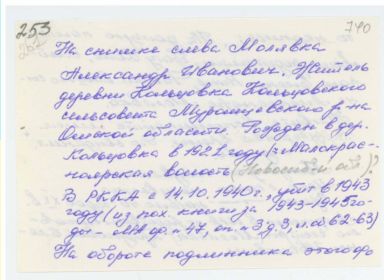 253
252
740
На снимке слева Молявка
Александр Иванович. Житель
деревни Кольцовка Кольцовского
сельсовета Муромцевского р-на
Омской области. Рожден в дер.
Кольцовка в 1921 году (: Малокрас-
ноярская волость (Новосибир. обл)?
В РККА с 14.10.1940г. убит в 1943
году (из пох. книги за 1943-1945го-
ды - ф. №47, оп. №3 д.3, л. об 62-63)
На обороте подлинника этого ф